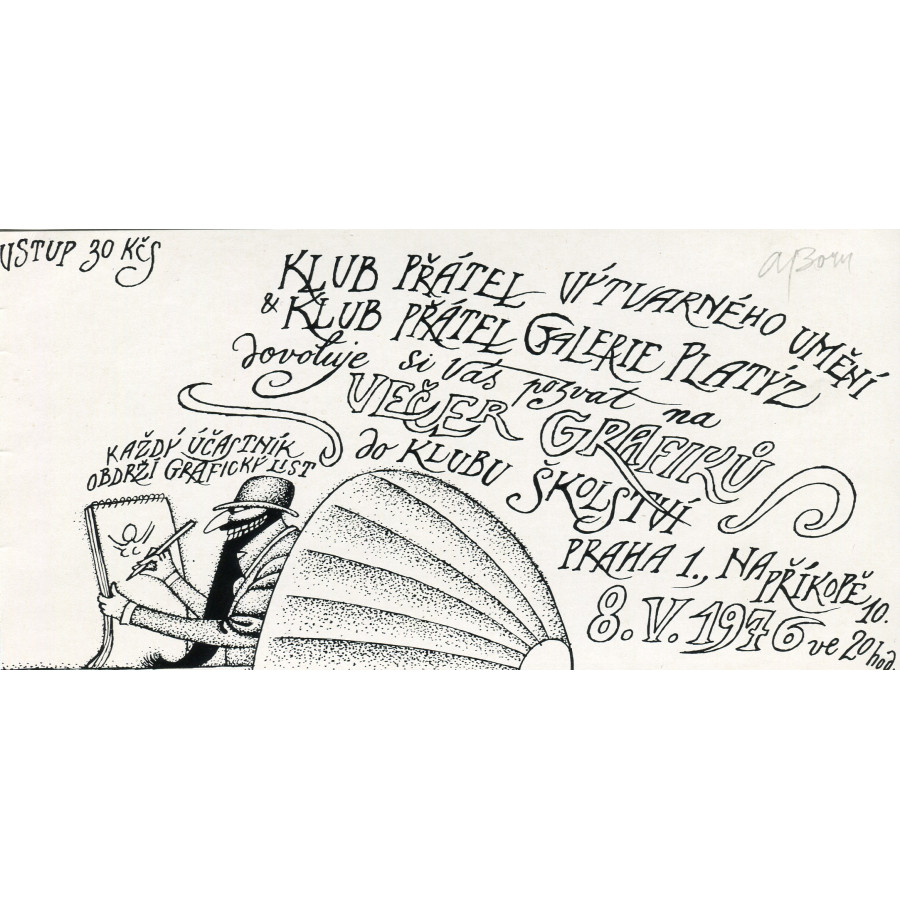 VSTUP 30 Kčs
KLUB PŘÁTEL VÝTVARNÉHO UMĚNÍ
& KLUB PŘÁTEL GALERIE PLATÝZ
dovoluje si Vás pozvat na
VEČER GRAFIKŮ
do KLUBU ŠKOLSTVÍ
PRAHA 1., NA PŘÍKOPĚ 10.
8. V. 1976 ve 20 hod.
KAŽDÝ ÚČASTNÍK
OBDRŽÍ GRAFICKÝ LIST
A Born